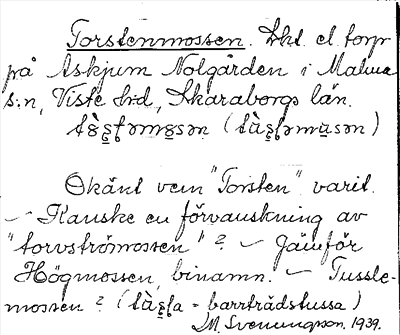 Torstenmossen. Skt. el. torp
på Askjum Nolgården i Malma
s:n, Viste h:d, Skaraborgs län.
Okänt vem "Torsten" varit.
– Kanske en förvanskning av
"torvströmossen"? – Jämför
Högmossen, binamn. – Tussle-
mossen? ( = barrträdstussa)
M. Svenungson, 1939.